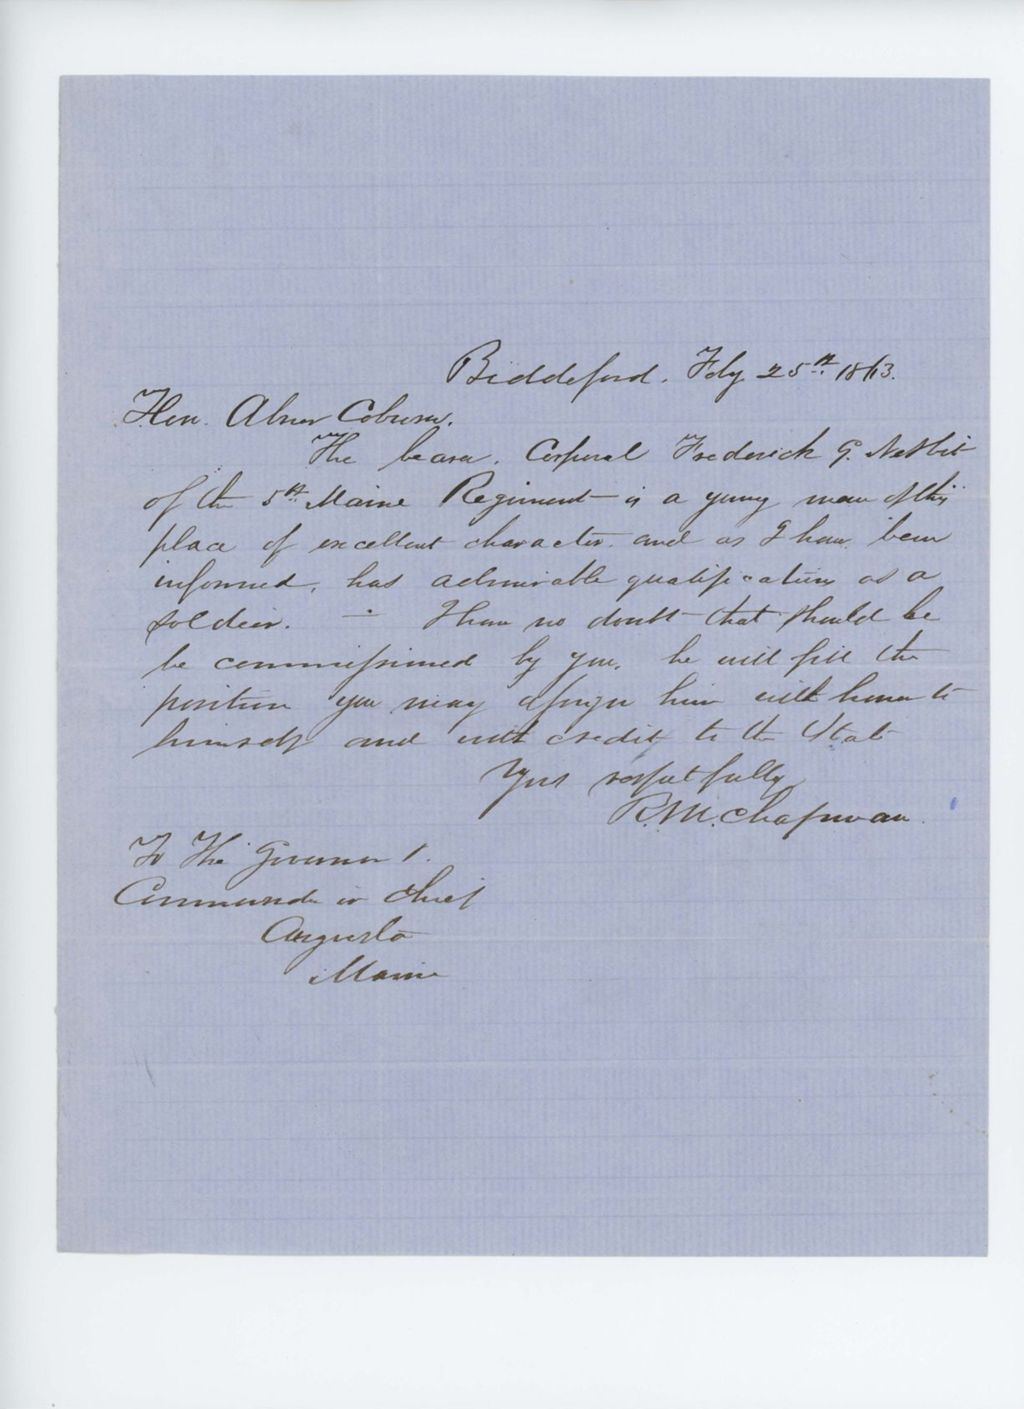 Biddeford, Feby 25th 1863.
Hon. Abner Coburn,
The bearer, Corporal Frederick G. Nesbit
of the 5th Maine Regiment is a young man of this
place of excellent character and as I have been
informed, has admirable qualifications as a
soldier. — I have no doubt that should he
be commissioned by you, he will fill the
position you may assign him with honor to
himself and with credit to the State
Yours respectfully
R. M. Chapman.
To The Governor &
Commander in Chief
Augusta
Maine